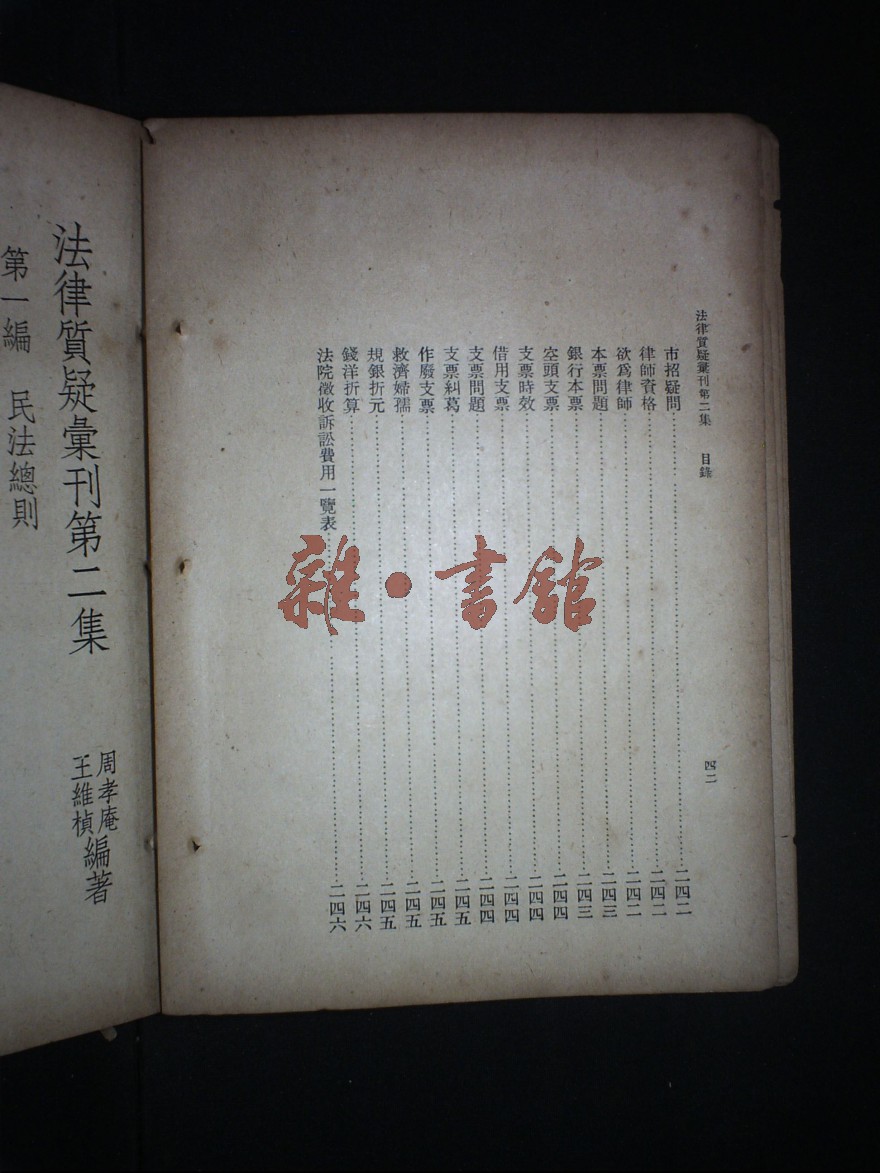 法律質疑彙刊第二集　目錄
四二
市招疑問…………二四二
律師資格…………二四二
欲爲律師…………二四二
本票問題…………二四三
銀行本票…………二四三
空頭支票…………二四四
支票時效…………二四四
借用支票…………二四四
支票問題…………二四四
支票糾葛…………二四五
作廢支票…………二四五
救濟婦孺…………二四五
規銀折元…………二四五
錢洋折算…………二四六
法院徵收訴訟費用一覽表…………二四六
法律質疑彙刊第二集
周孝庵
王維楨
編著
第一編　民法總則
雜·書館